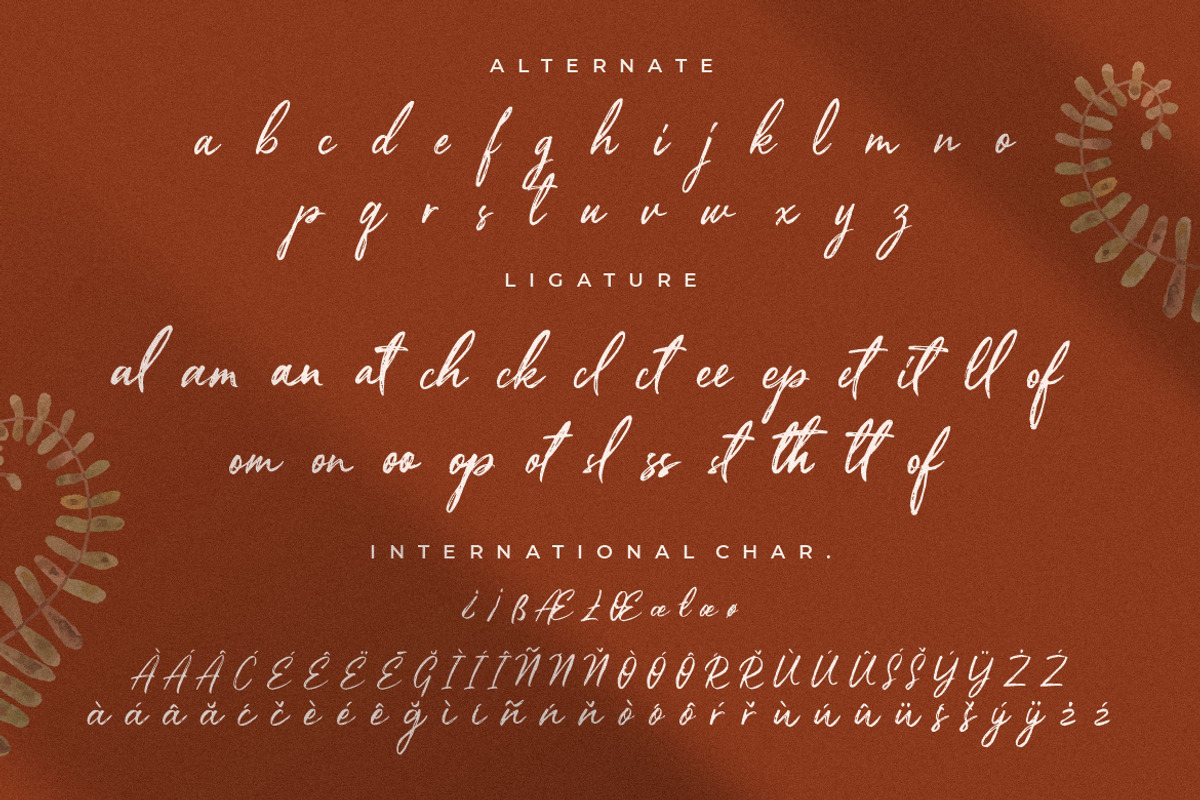 ALTERNATE
a b c d e f g h i j k l m n o
p q r s t u v w x y z
LIGATURE
al am an at ch ck cl ct ee ep et it ll of
om on oo op ot sl ss st th tt of
INTERNATIONAL CHAR.
¿ ¡ ß Æ Ł Œ œ ł æ ø
À Á Â Ć É Ê Ë Ē Ğ Ì Í Î Ñ Ń Ň Ò Ó Ô Ŕ Ř Ù Ú Û Ś Š Ý Ÿ Ż Ź
à á â ă ć č è é ê ğ ì í ñ ń ň ò ó ô ŕ ř ù ú û ü ś š ý ÿ ż ź